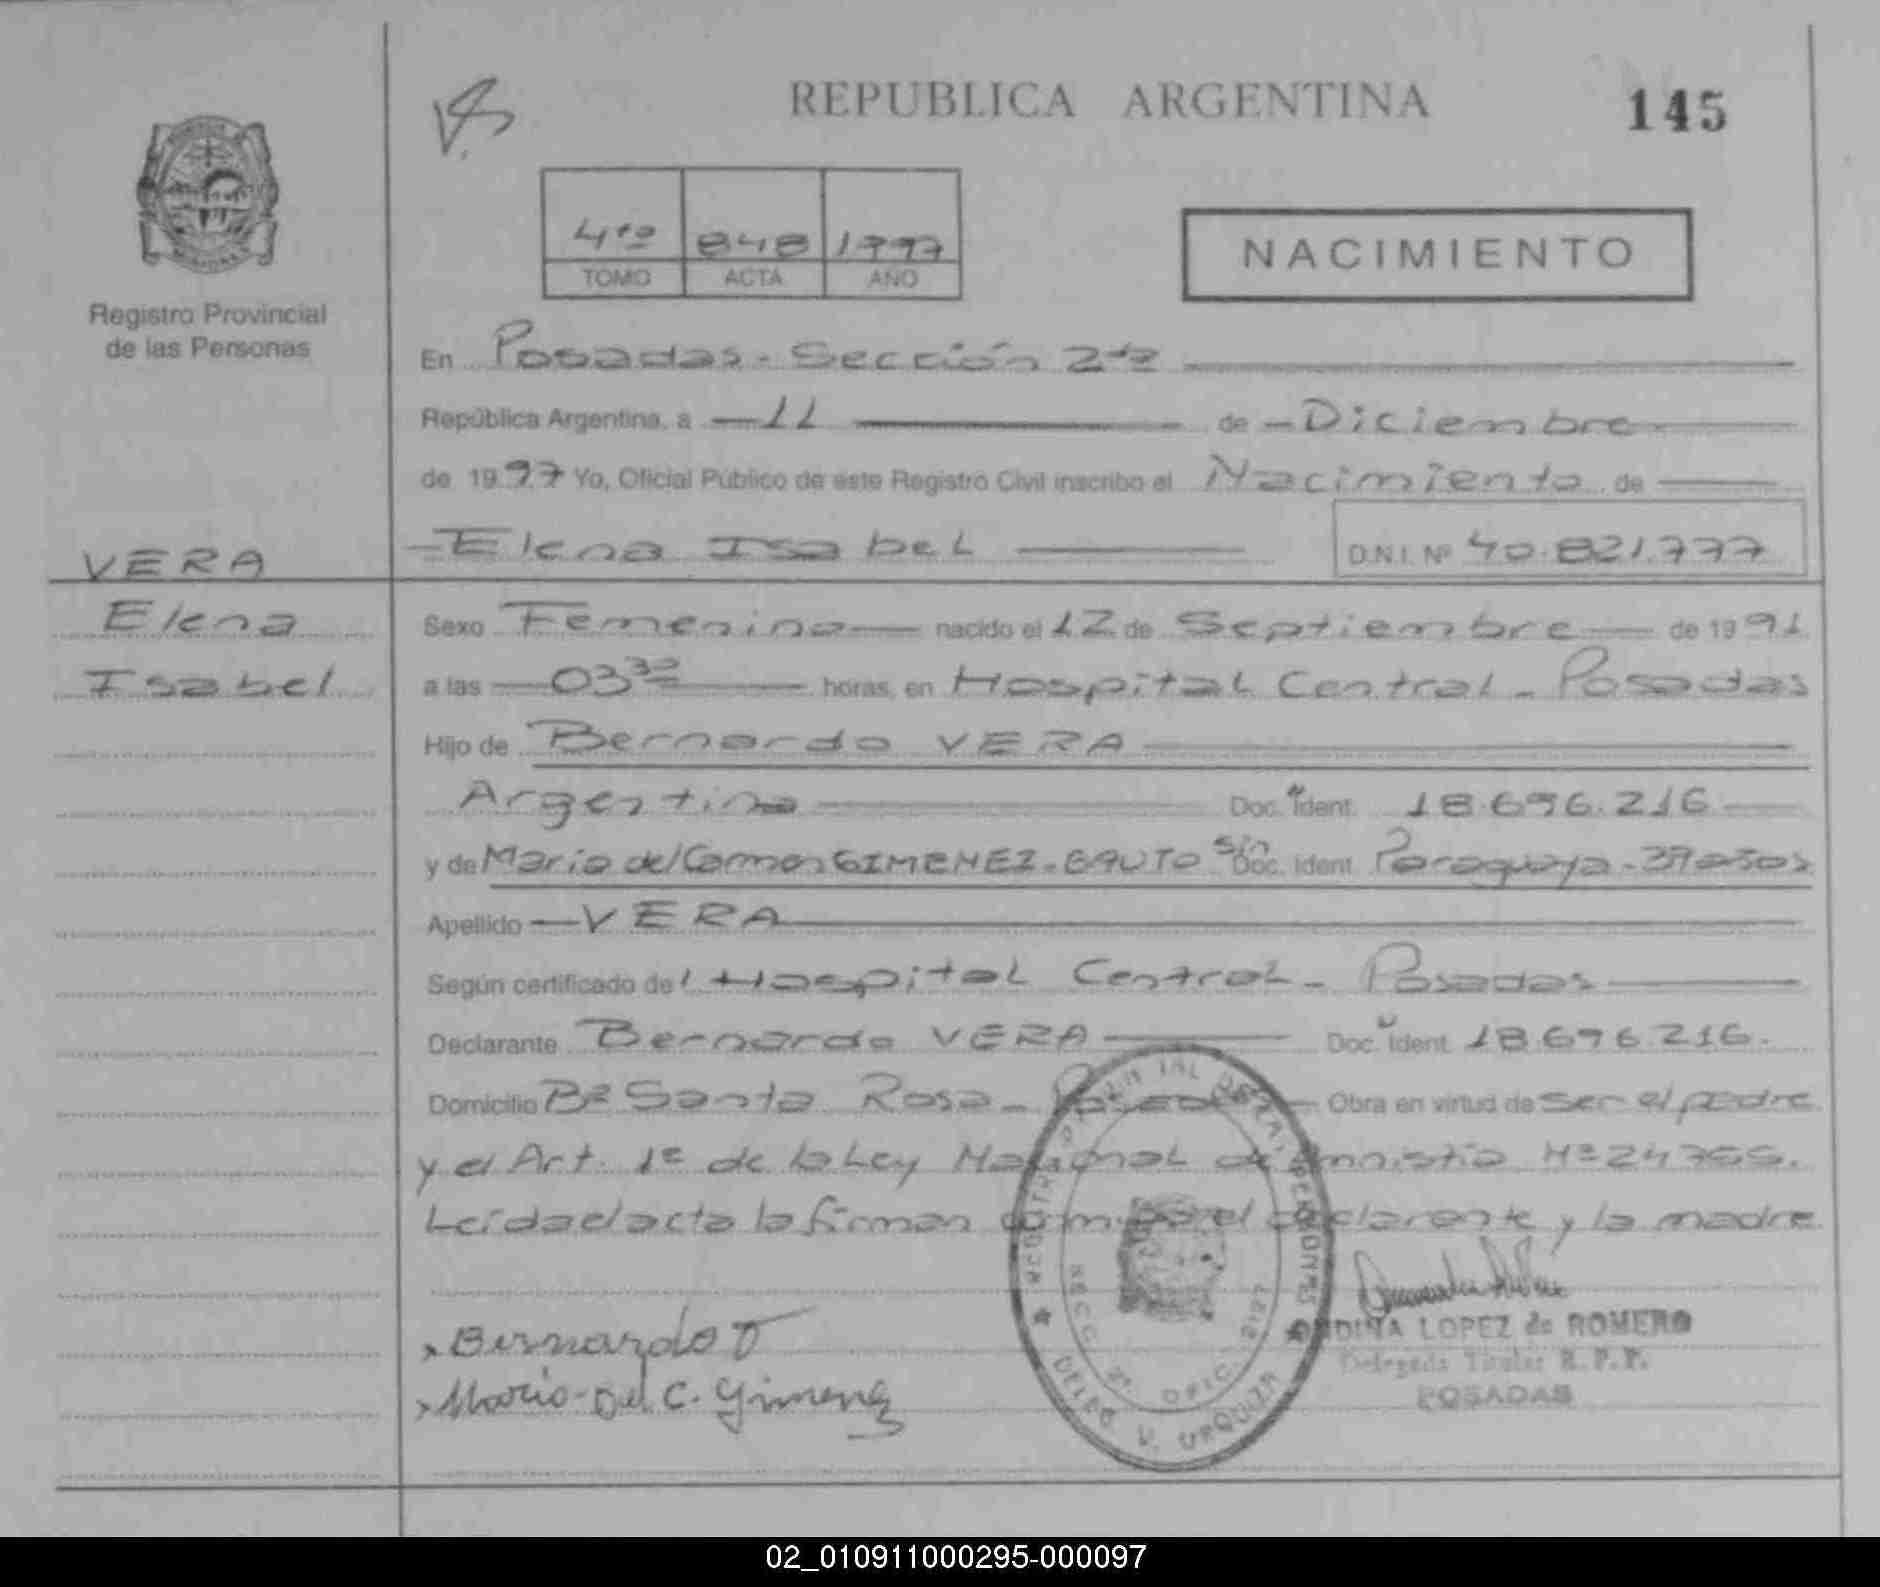 REPUBLICA ARGENTINA
145
4to 848 1997
TOMO ACTA AÑO
NACIMIENTO
Registro Provincial
de las Personas
En Posadas - Sección 2da
República Argentina, a 11 de Diciembre
de 1997 Yo, Oficial Público de este Registro Civil inscribo el Nacimiento de
Elena Isabel D.N.I. Nº 40.821.777
VERA
Elena
Isabel
Sexo Femenino nacido el 12 de Septiembre de 1991
a las 03 30 horas, en Hospital Central - Posadas
Hijo de Bernardo VERA
Argentino Doc. Ident. 18.696.216
y de Maria del Carmen GIMENEZ - GAUTO sin Doc. Ident. Paraguaya - 39 años
Apellido VERA
Según certificado del Hospital Central - Posadas
Declarante Bernardo VERA Doc. Ident. 18.696.216.
Domicilio Bº Santa Rosa - Posadas Obra en virtud de ser el padre
y el Art. 1º de la Ley Nacional de Amnistia Nº 24755.
Leida el acta la firman conmigo el declarante y la madre
Bernardo V
Maria Del C. Gimenez
REGISTRO PROVINCIAL DE LAS PERSONAS
SECC. 2ª. OFIC. 2197
DELEG. V. URQUIZA
LOPEZ de ROMERO
Delegada Titular R.P.P.
POSADAS
02_010911000295-000097